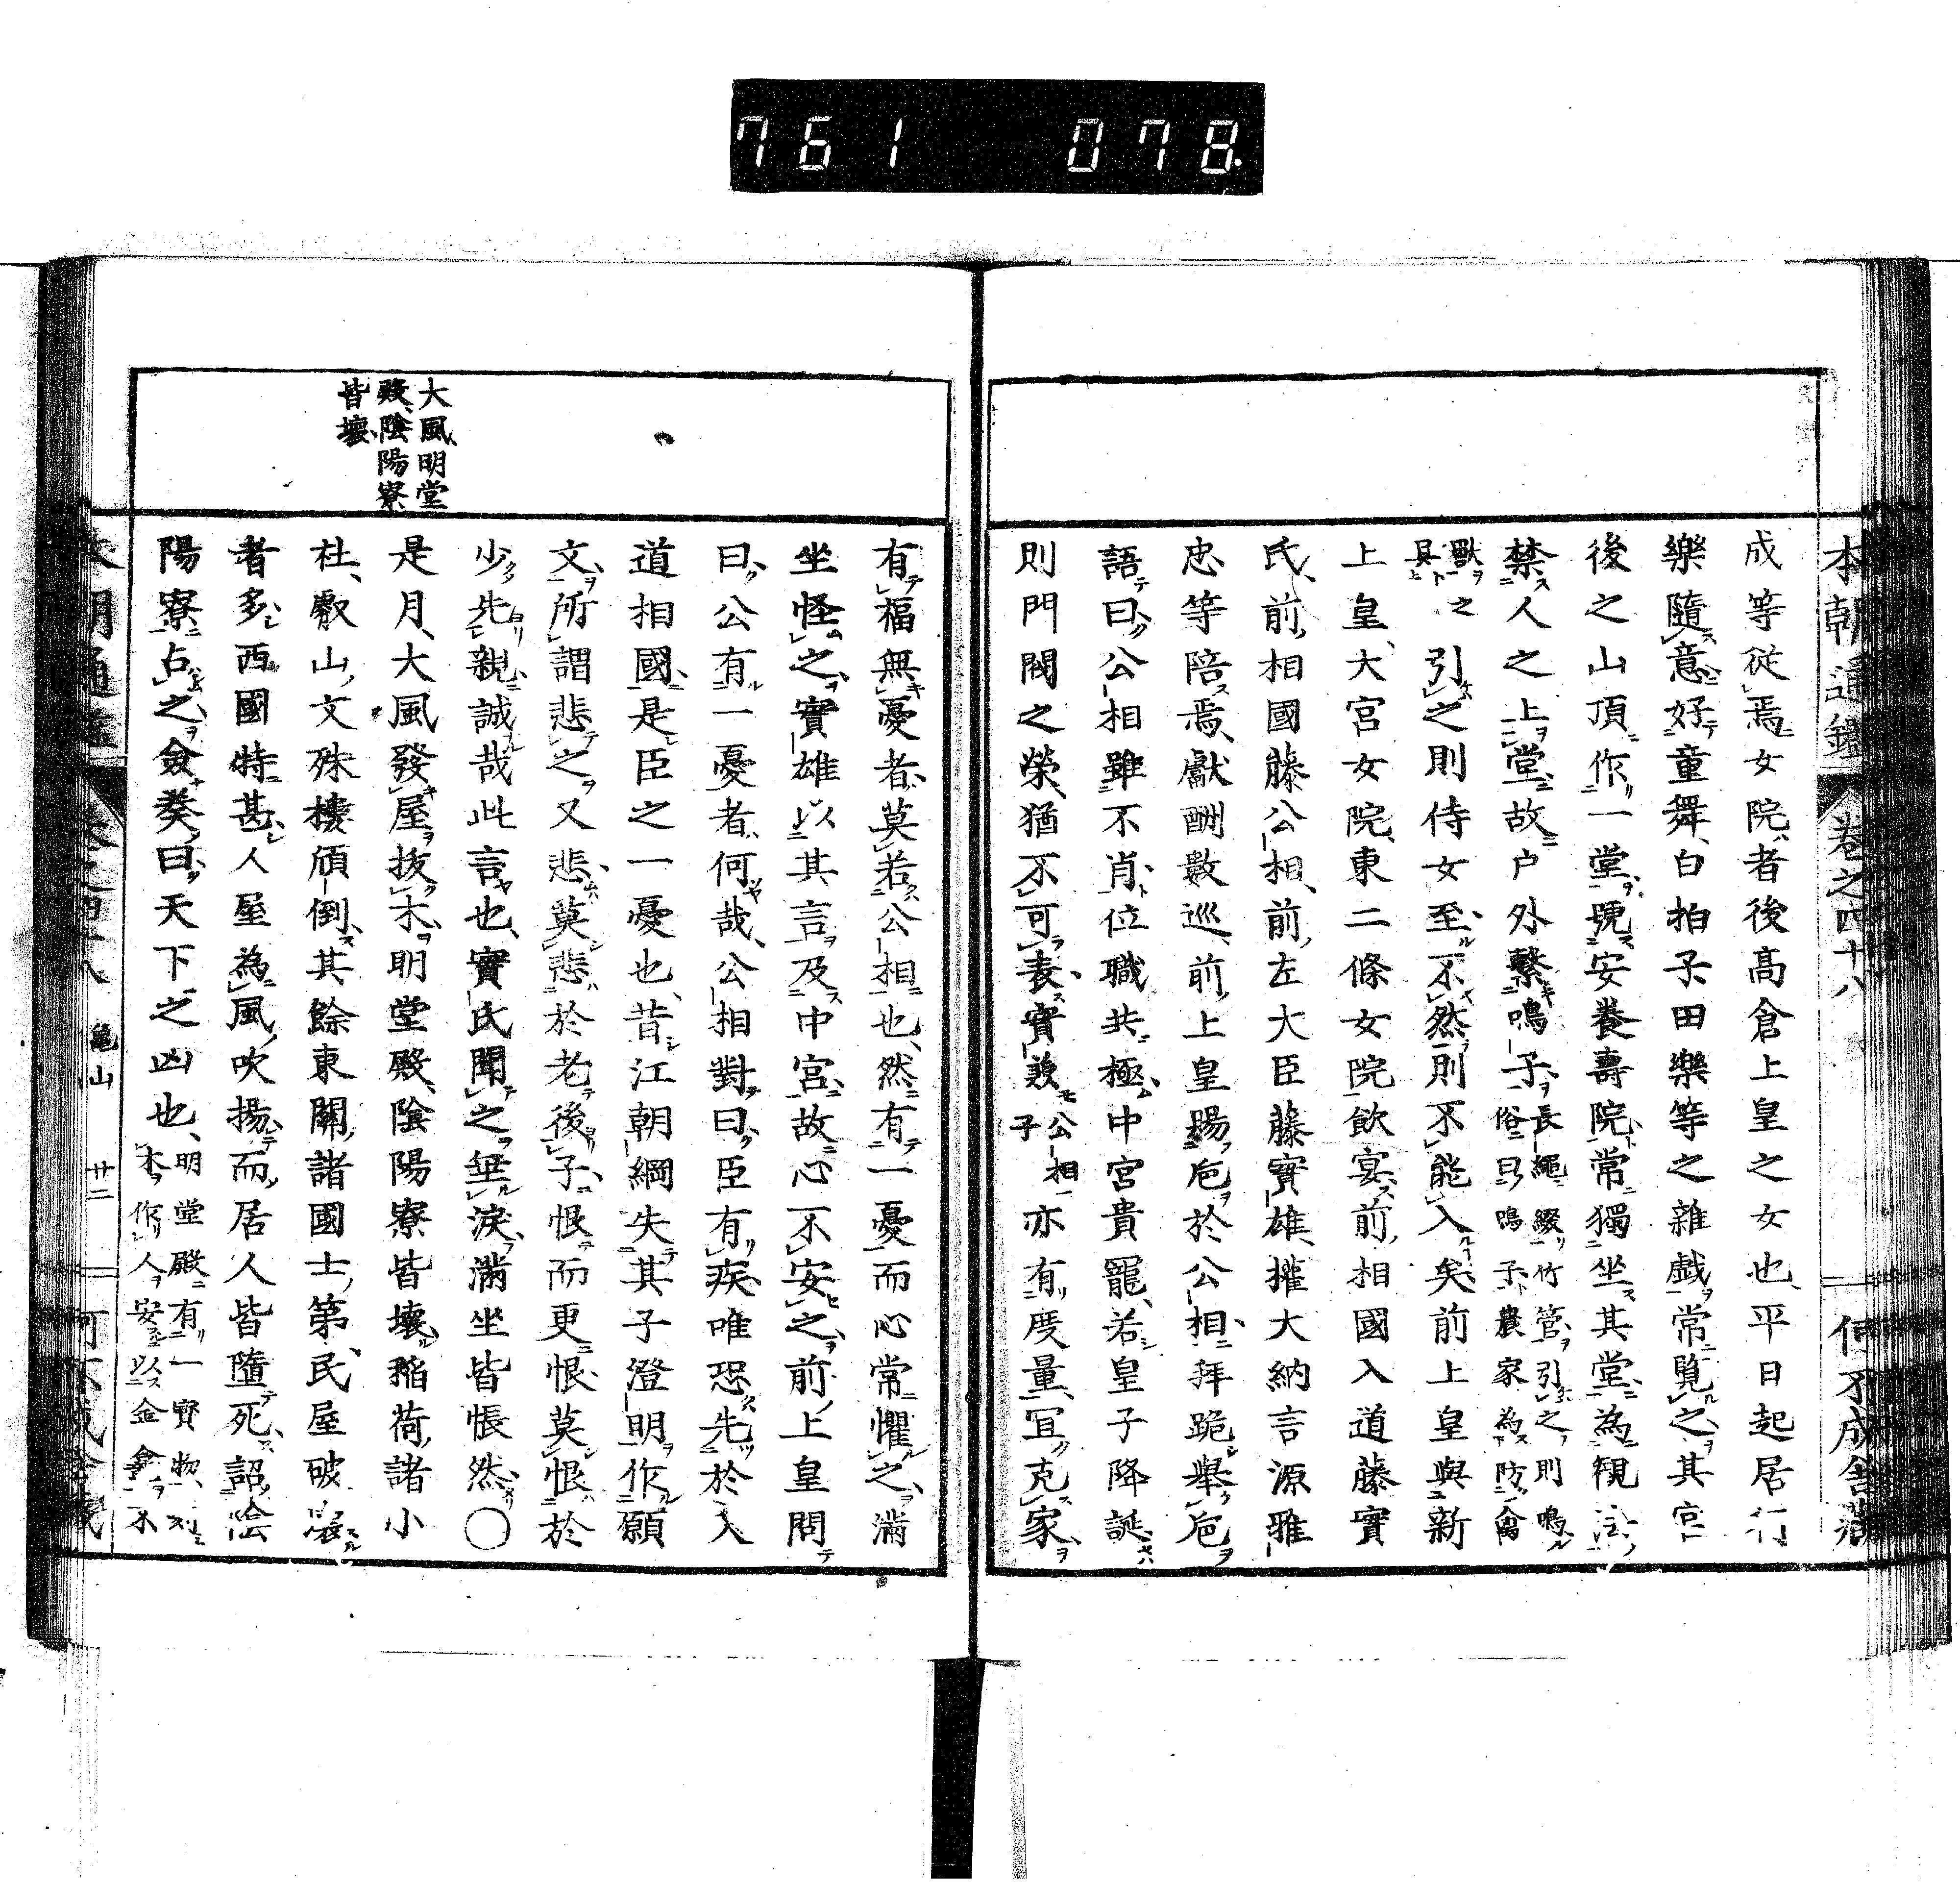 761 078
本朝通鑑 卷之四十八 何不成舎藏
成等從焉女院者後髙倉上皇之女也平日起居行
樂隨意好童舞白拍子田樂等之雜戯常覧之其宮
後之山頂作一堂號安養壽院常獨坐其堂為觀法
禁人之上堂故戸外繫鳴子長繩綴竹管引之則鳴俗曰鳴子農家為防禽
獸之具引之則侍女至不然則不能入矣前上皇與新
上皇大宮女院東二條女院飲宴前相國入道藤實
氏前相國藤公相前左大臣藤實雄權大納言源雅
忠等陪焉獻酬數巡前上皇揚巵於公相拜跪舉巵
語曰公相雖不肖位職共極中宮貴寵若皇子降誕
則門閥之榮猶不可表實兼公相子亦有度量宜克家
有福無憂者莫若公相也然有一憂而心常懼之滿
坐怪之實雄以其言及中宮故心不安之前上皇問
曰公有一憂者何哉公相對曰臣有疾唯恐先於入
道相國是臣之一憂也昔江朝綱失其子澄明作願
文所謂悲之又悲莫悲於老後子恨而更恨莫恨於
少先親誠哉此言也實氏聞之垂淚滿坐皆悵然〇
大風明堂
殿陰陽寮
皆壞
是月大風發屋拔木明堂殿陰陽寮皆壞稲荷諸小
社叡山文殊樓傾倒其餘東關諸國士第民屋破壞
者多西國特甚人屋為風吹揚而居人皆墮死詔陰
陽寮占之僉奏曰天下之凶也明堂殿有一寶物刻木作人安以金龕木
本朝通鑑 卷之四十八 龜山 廿二 何不成舎藏